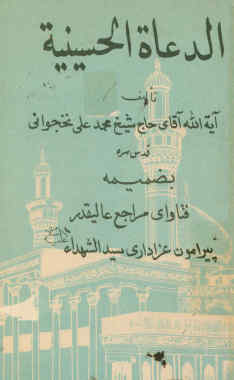 الدعاة الحسينية
تأليف
آية الله آقای حاج شیخ محمد علی نخجوانی
قدس سره
بضمیمه
فتاوای مراجع عالیقدر
پیرامون عزاداری سید الشهداء